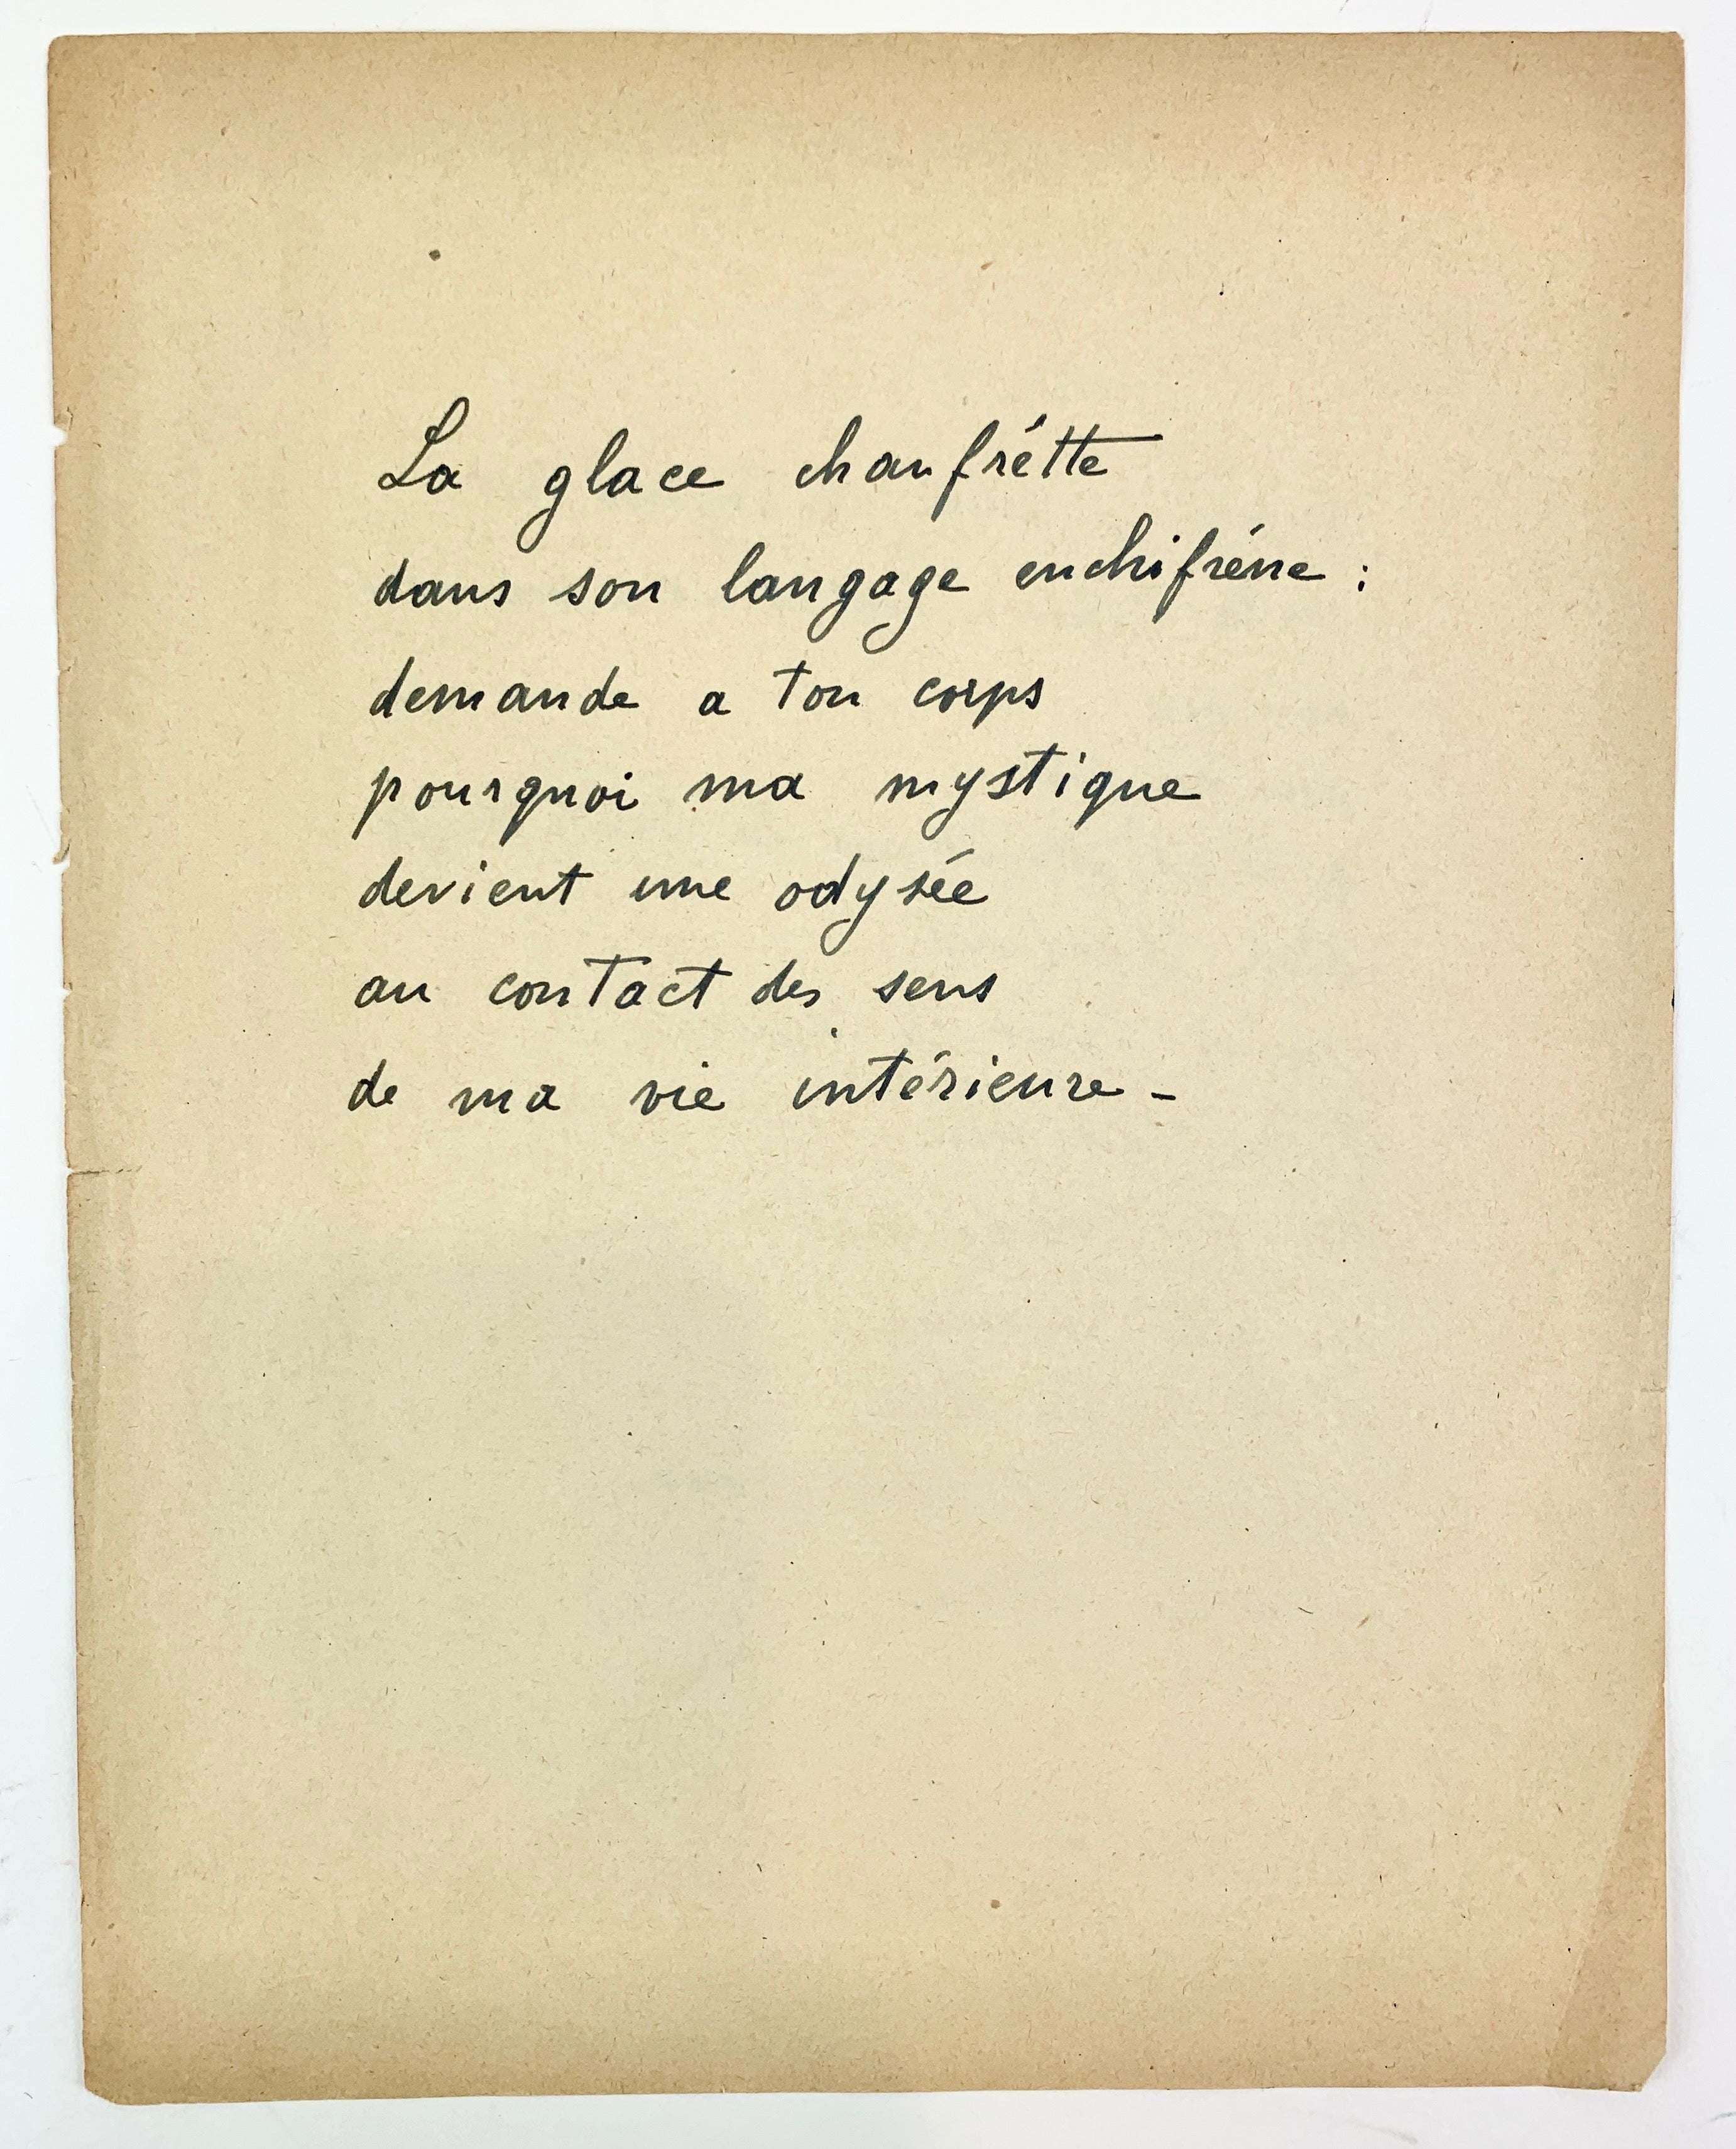 La glace chaufrétte
dans son langage enchifréne :
demande a ton corps
pourquoi ma mystique
devient une odysée
au contact des sens
de ma vie intérieure -